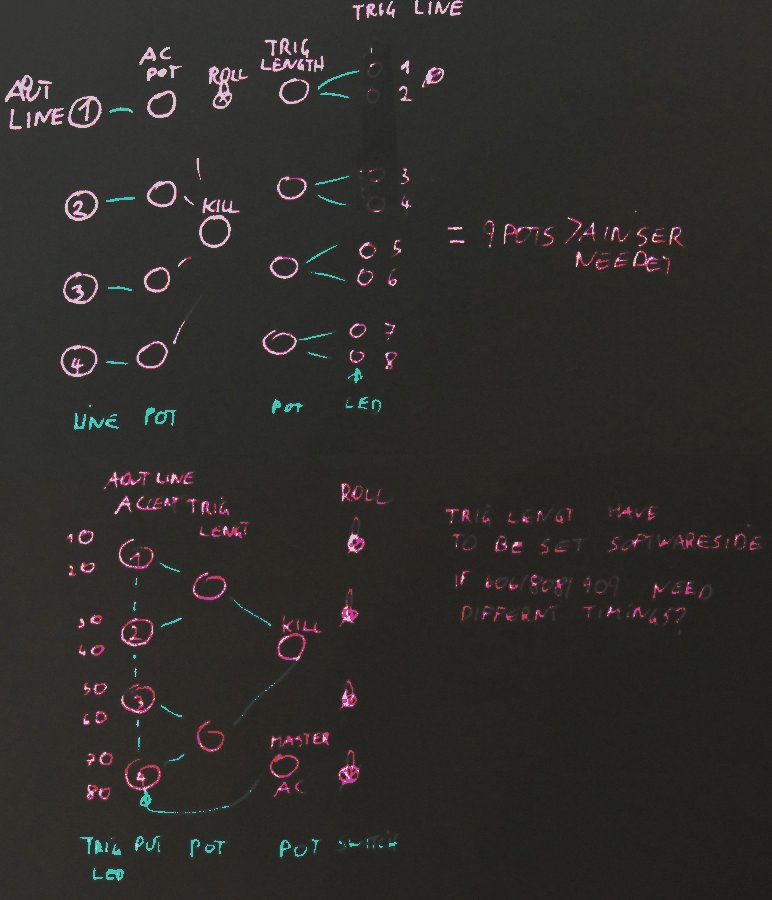 TRIG LINE
AC POT
ROLL
TRIG LENGTH
AUT LINE
1
1
2
2
KILL
3
4
= 9 POTS > AIN SER
NEEDET
3
5
6
4
7
8
LINE POT
POT
LED
AOUT LINE
ACCENT TRIG
LENGT
ROLL
10
20
1
30
40
2
KILL
50
60
3
70
80
4
MASTER
AC
TRIG POT POT POT SWITCH
LED
TRIG LENGT HAVE
TO BE SET SOFTWARESIDE
IF 606/808/909 NEED
DIFFERNT TIMINGS?